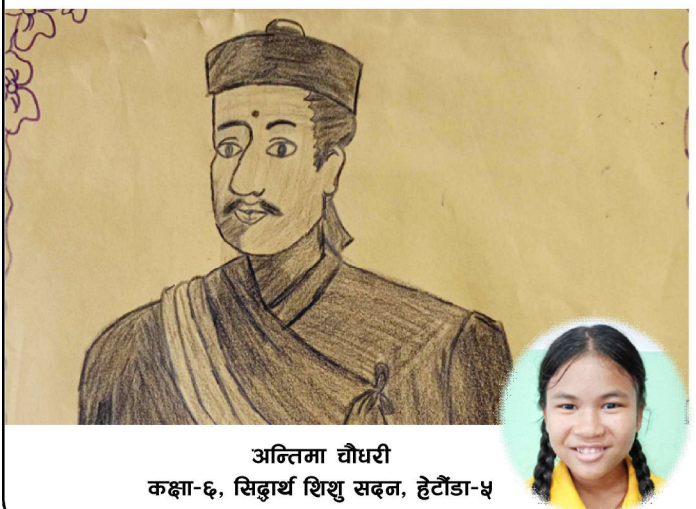 अन्तिमा चौधरी
कक्षा-६, सिद्धार्थ शिशु सदन, हेटौंडा-५